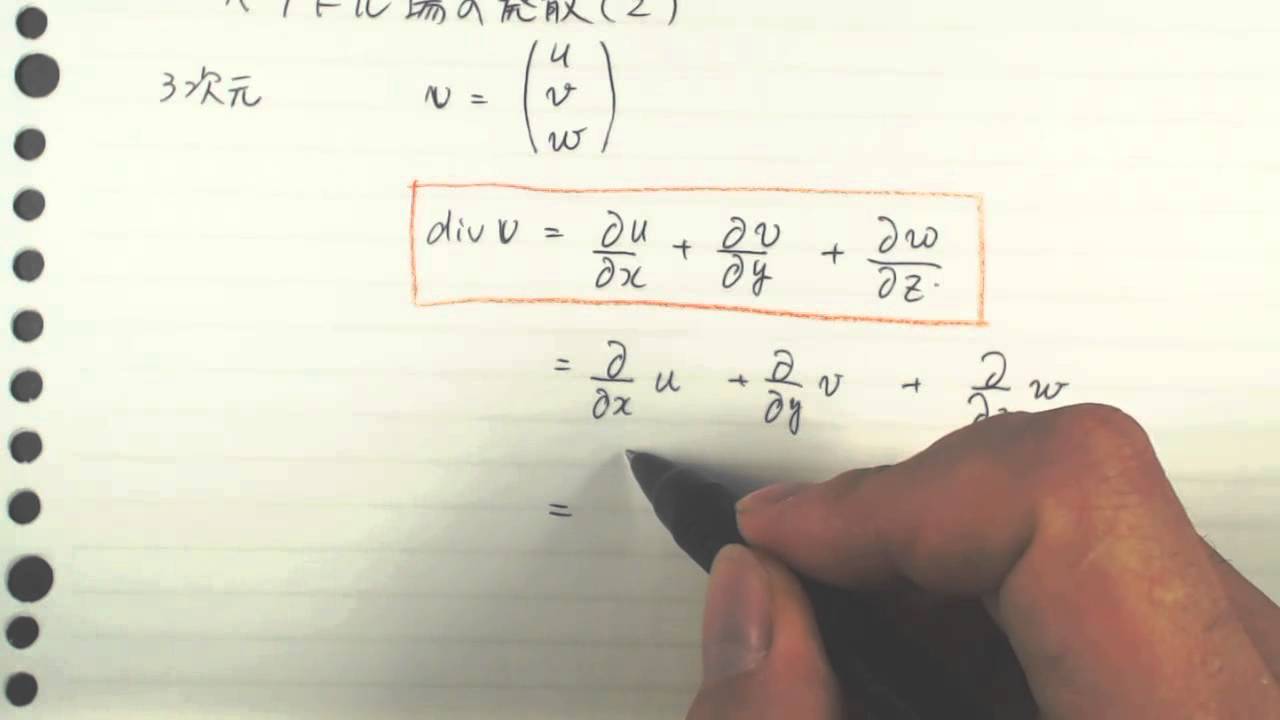 ベクトル場の発散(2)
3次元 v = (u v w)
div v = ∂u/∂x + ∂v/∂y + ∂w/∂z.
= ∂/∂x u + ∂/∂y v + ∂/∂z w
=